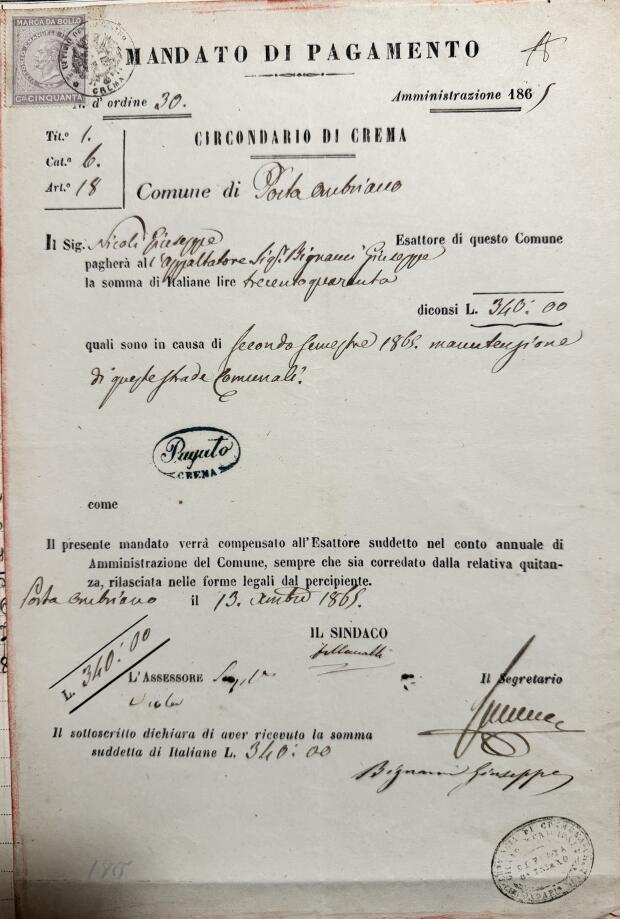 MARCA DA BOLLO
Cmi CINQUANTA
CREMA
MANDATO DI PAGAMENTO
N. d'ordine 30.
Amministrazione 1865
Tit.° 1.
Cat.ª 6.
Art.° 18
CIRCONDARIO DI CREMA
Comune di Porta Ombriano
Il Sig. Nicoli Giuseppe Esattore di questo Comune
pagherà all'appaltatore Sig.r Bignami Giuseppe
la somma di Italiane lire trecentoquaranta
diconsi L. 340:00
quali sono in causa di secondo semestre 1865. manutenzione
di queste strade Comunali.
Pagato
CREMA
come
Il presente mandato verrà compensato all'Esattore suddetto nel conto annuale di
Amministrazione del Comune, sempre che sia corredato dalla relativa quitan-
za, rilasciata nelle forme legali dal percipiente.
Porta Ombriano il 13. Xmbre 1865.
IL SINDACO
L. 340:00
L'ASSESSORE
Il Segretario
Il sottoscritto dichiara di aver ricevuto la somma
suddetta di Italiane L. 340:00
Bignami Giuseppe